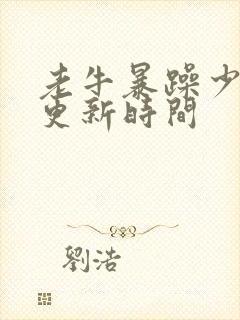 老牛暴躁少
更新時間
劉浩